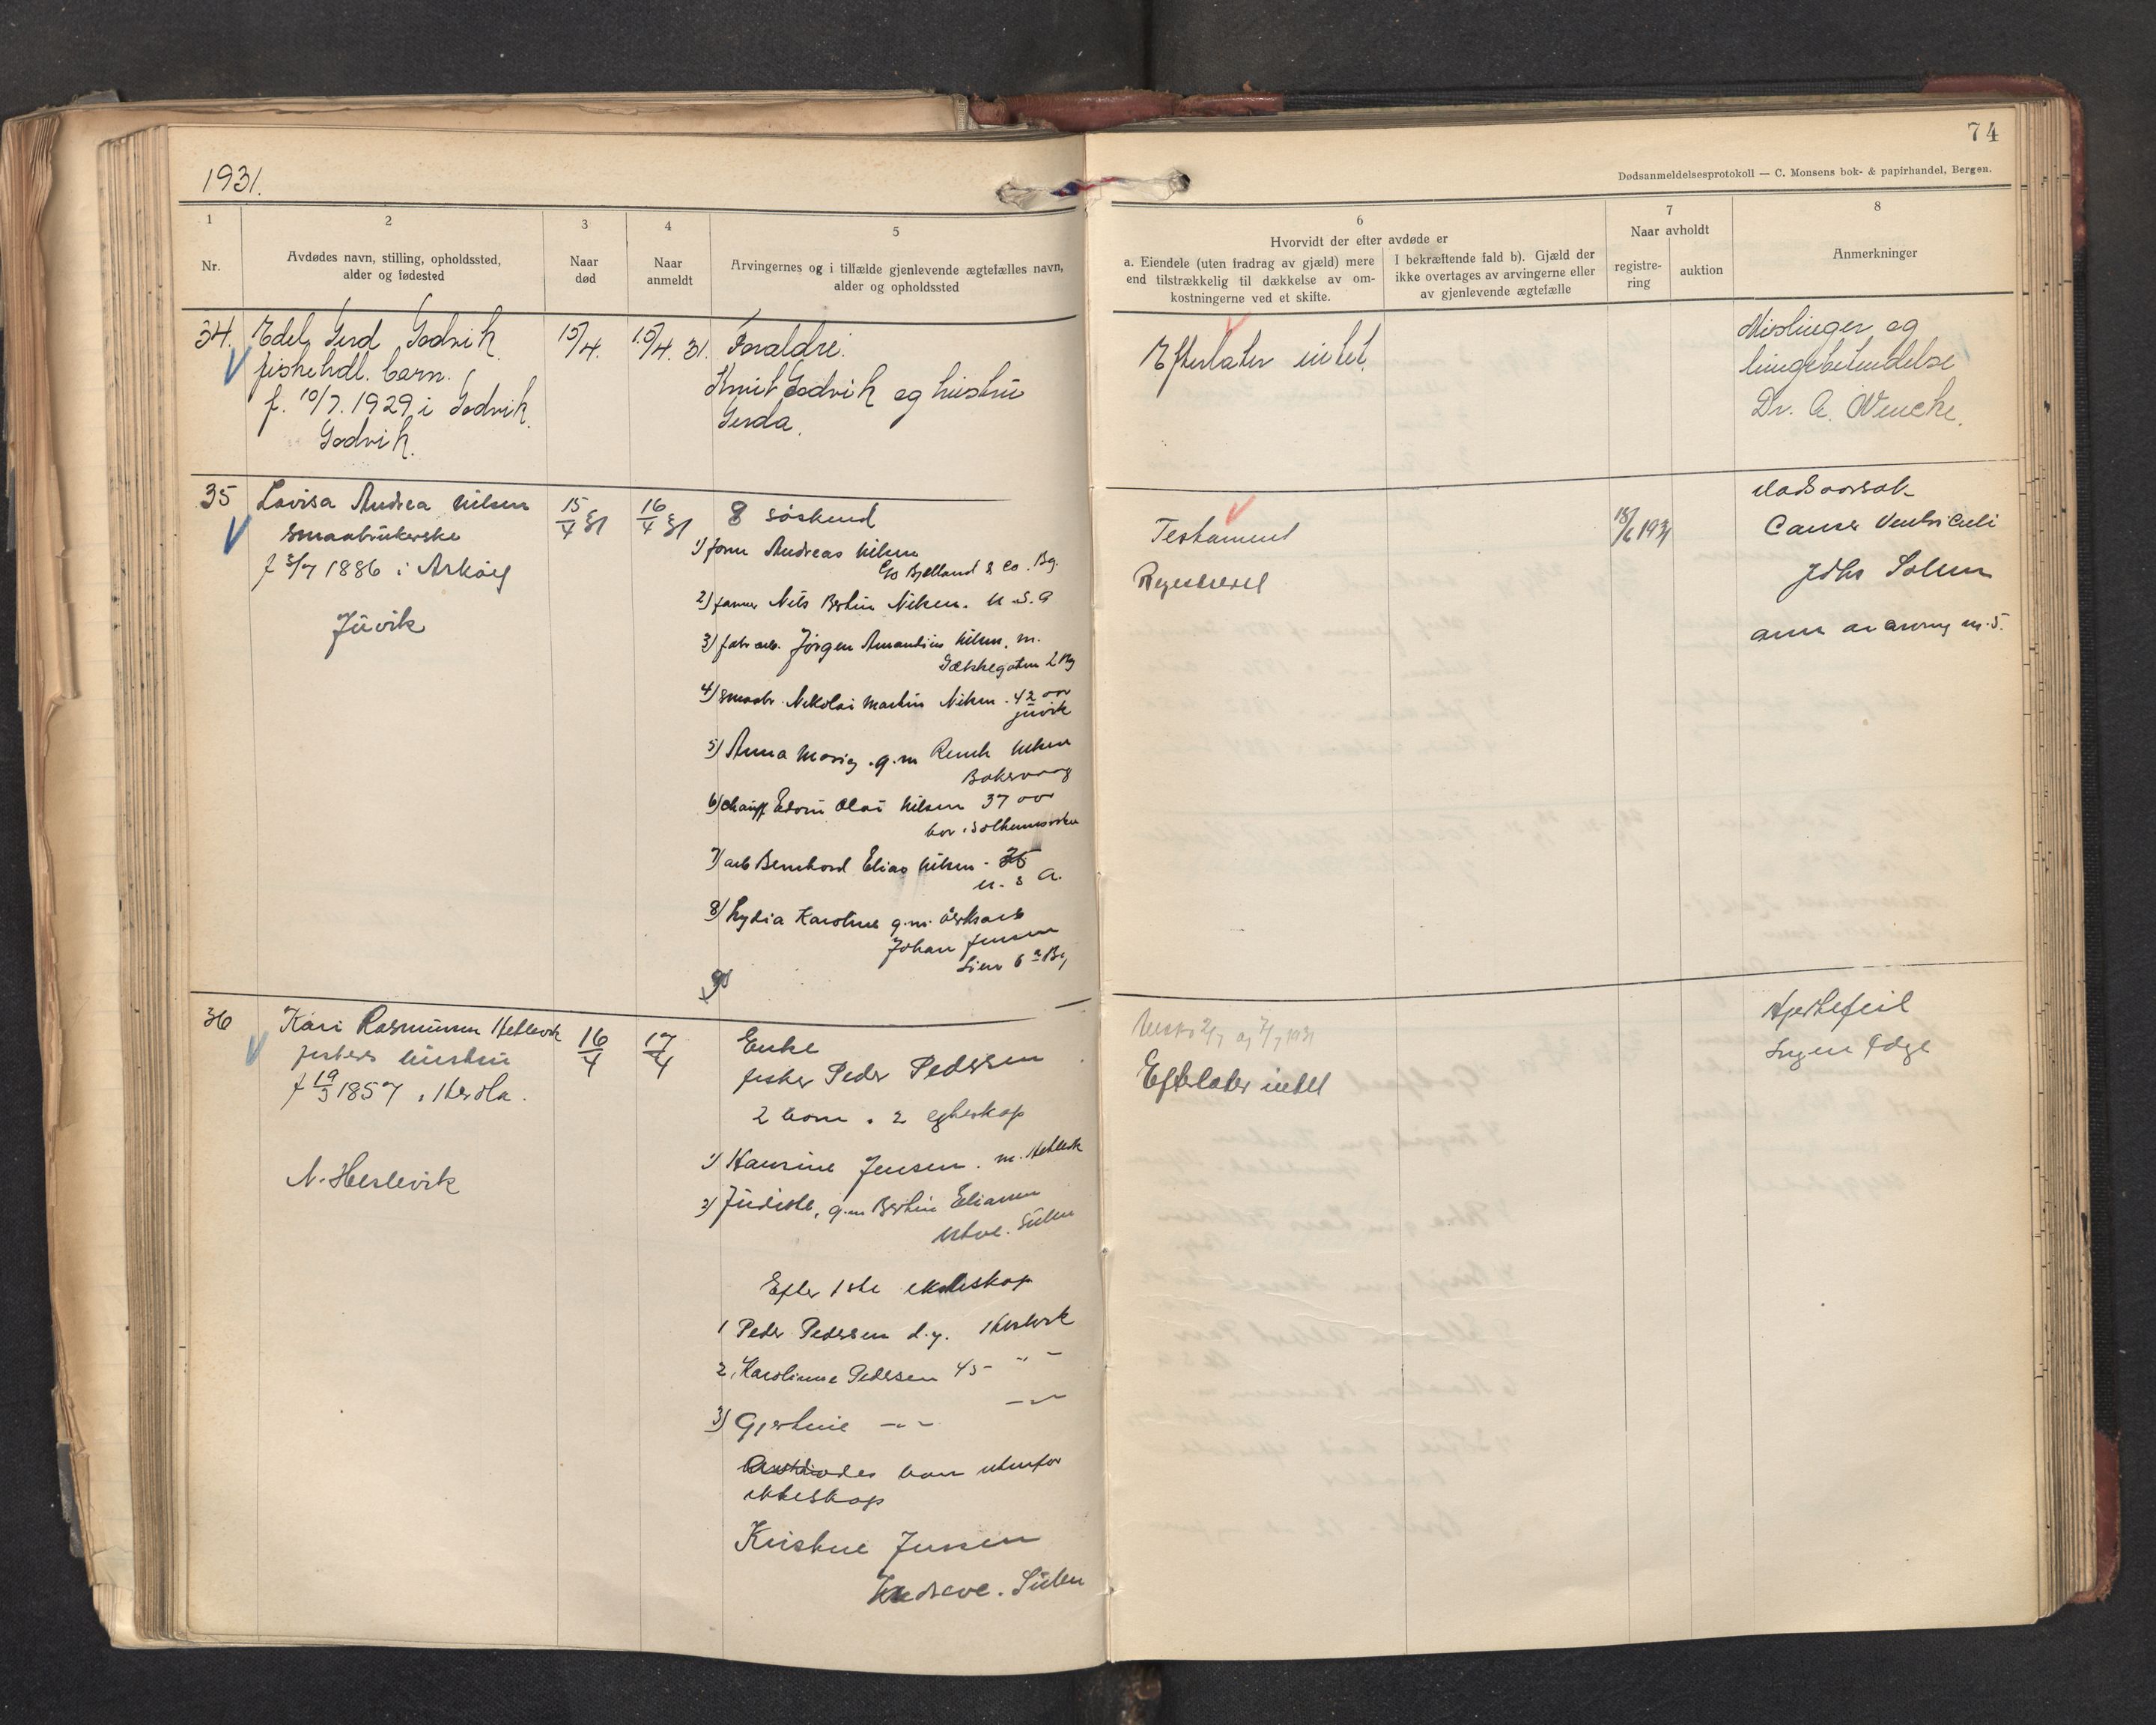 1931.
74
Dødsanmeldelsesprotokoll — C. Monsens bok- & papirhandel, Bergen.
1
Nr.
2
Avdødes navn, stilling, opholdssted,
alder og fødested
3
Naar
død
4
Naar
anmeldt
5
Arvingernes og i tilfælde gjenlevende ægtefælles navn,
alder og opholdssted
6
Hvorvidt der efter avdøde er
a. Eiendele (uten fradrag av gjæld) mere
end tilstrækkelig til dækkelse av om-
kostningerne ved et skifte.
I bekræftende fald b). Gjæld der
ikke overtages av arvingerne eller
av gjenlevende ægtefælle
7
Naar avholdt
registre-
ring
auktion
8
Anmerkninger
34.
Edel Gerd Godvik
fiskehdl. barn.
f. 10/7. 1929 i Godvik.
Godvik.
15/4.
15/4. 31.
Foraldre.
Knut Godvik og hustru
Gerda.
Efterlater intet.
Meslinger og
lungebetendelse
Dr. A. Wencke.
35
Lovisa Andrea Nilsen
smaabrukerske
f 5/7 1886 i Askøy
Juvik
15/4 31
16/4 31
8 søskend
1) form Andreas Nilsen
c/o Bjelland & Co. Bg.
2) farmer Nils Bertin Nilsen. U.S.A
3) fabr arb. Jørgen Amandius Nilsen. m.
2 Bg
4) smaabr. Nikolai Martin Nilsen. 42 aar
Juvik
5) Anna g.m Nilsen
6) chauff Edvin Olai Nilsen 37 aar
bor i
7) arb Bernhard Elias Nilsen -
U.S A.
8) Lydia Karoline g.m.
Johan Jensen
Lien 6 Bg
Testament
Registreret
18/6 1931
dødsaarsak
Cancer Ventriculi
Johs Solem
36
Kari Rasmussen Hetlevik
fiskers hustru
f 19/3 1857 i Herdla.
N. Heslevik
16/4
17/4
Enke
fisker Peder Pedersen
2 barn. 2 egteskap
1) Hansine Jensen. m. Hetlevik
2) g.m Bertin Eliassen
Utvæ. Sulen
Efter 1ste ekteskap
1 Peder Pedersen d.y.
2, Karolinne Pedersen 45 - " -
3) Gjertine - " - - " -
barn utenfor
ekteskap
Kristine Jensen
Sulen
Efterlater intet
Hjertefeil
Ingen læge